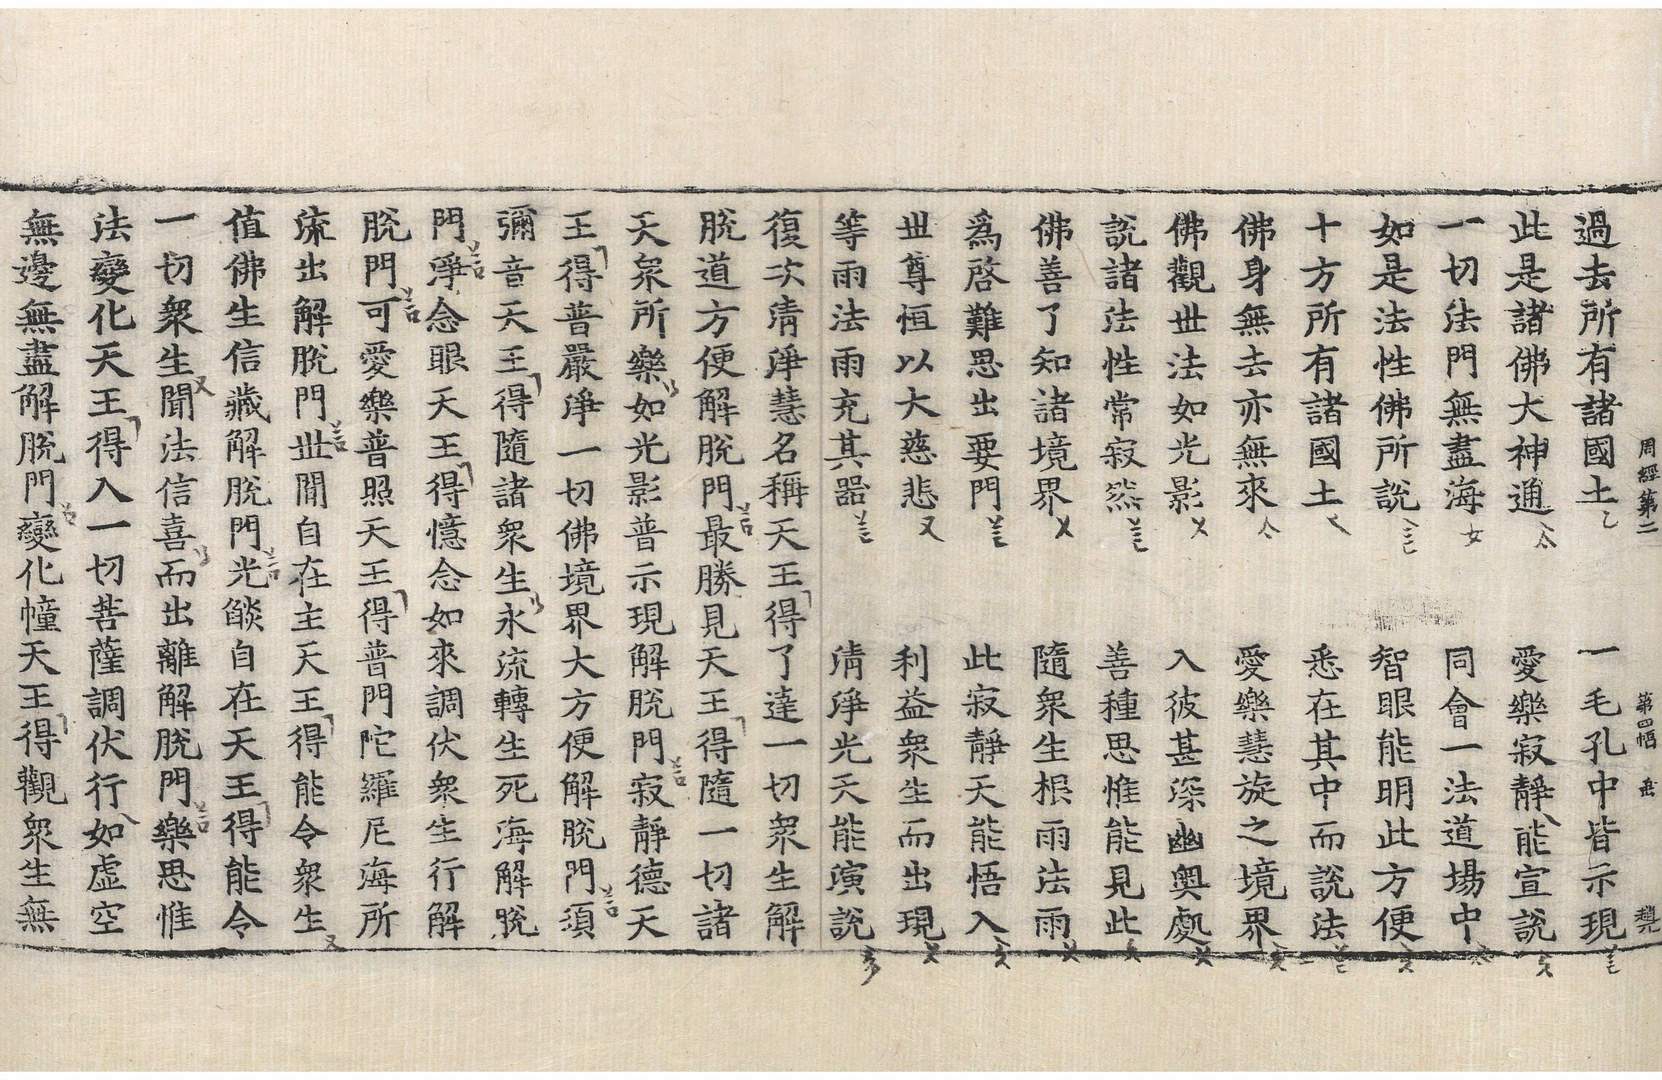 周經第二　第四幅
過去所有諸國土　一毛孔中皆示現
此是諸佛大神通　愛樂寂靜能宣說
一切法門無盡海　同會一法道場中
如是法性佛所說　智眼能明此方便
十方所有諸國土　悉在其中而說法
佛身無去亦無來　愛樂慧旋之境界
佛觀世法如光影　入彼甚深幽奧處
說諸法性常寂然　善種思惟能見此
佛善了知諸境界　隨衆生根雨法雨
爲啓難思出要門　此寂靜天能悟入
世尊恒以大慈悲　利益衆生而出現
等雨法雨充其器　清淨光天能演說
復次清淨慧名稱天王得了達一切衆生解
脫道方便解脫門最勝見天王得隨一切諸
天衆所樂如光影普示現解脫門寂靜德天
王得普嚴淨一切佛境界大方便解脫門須
彌音天王得隨諸衆生永流轉生死海解脫
門淨念眼天王得憶念如來調伏衆生行解
脫門可愛樂普照天王得普門陀羅尼海所
流出解脫門世間自在主天王得能令衆生
值佛生信藏解脫門光燄自在天王得能令
一切衆生聞法信喜而出離解脫門樂思惟
法變化天王得入一切菩薩調伏行如虛空
無邊無盡解脫門變化幢天王得觀衆生無